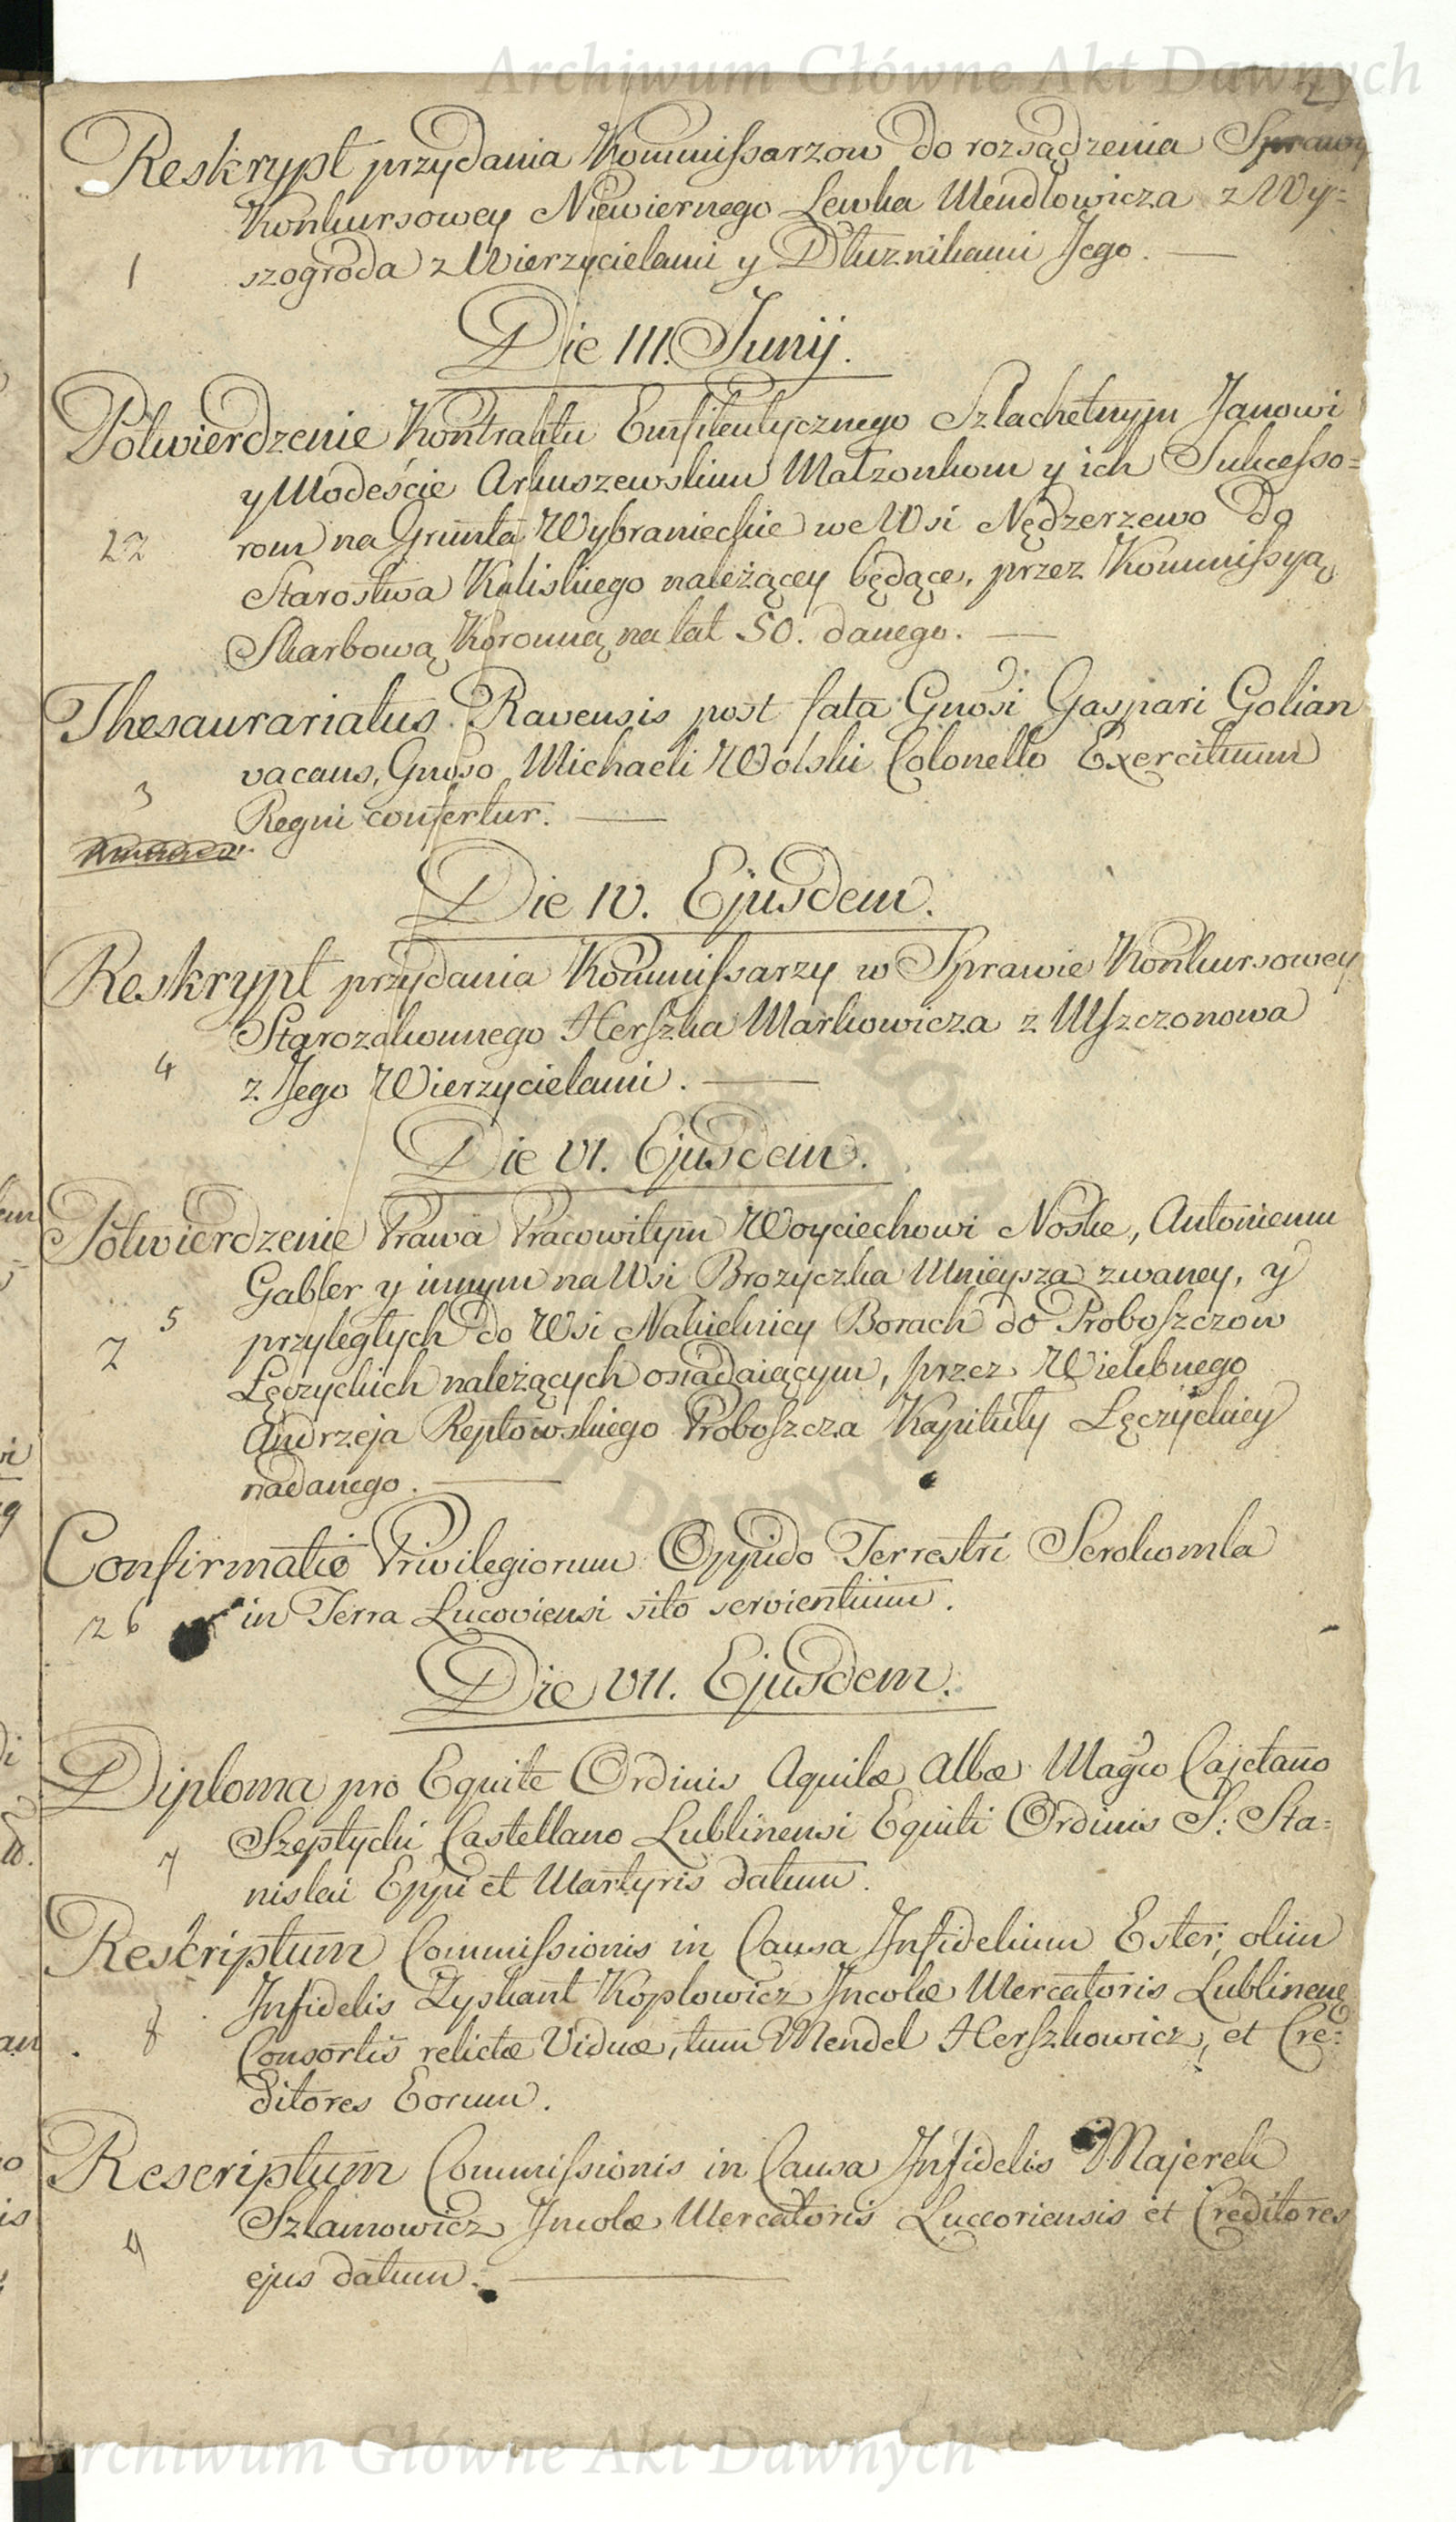 Archiwum Główne Akt Dawnych
2
Reskrypt przydania Kommissarzow do rozsądzenia Sprawy
Konkursowey Niewiernego Lewka Mendlowicza z Wy=
1 szogroda z Wierzycielami y Dłuznikami Jego.
Die III. Junij.
Potwierdzenie Kontraktu Emfiteutycznego Szlachetnym Janowi
y Modeście Arkuszewskim Małzonkom y ich Sukcesso=
12 rom na Grunta Wybranieckie we Wsi Nędzerzewo do
Starostwa Kaliskiego należącey będące, przez Kommissyą
Skarbową Koronną na lat 50. danego.
Thesaurariatus Ravensis post fata Gnosi Gaspari Golian
vacans, Gnoso Michaeli Wolski Colonello Exercituum
3 Regni confertur.
Die IV. Ejusdem.
Reskrypt przydania Kommissarzy w Sprawie Konkursowey
Starozakonnego Herszka Markowicza z Mszczonowa
4 z Jego Wierzycielami.
Die VI. Ejusdem.
Potwierdzenie Prawa Pracowitym Woyciechowi Noske, Antoniemu
Gabler y innym na Wsi Brozyczka Mnieysza zwaney, y
2 5 przyległych do Wsi Nakielnicy Borach do Proboszczow
Łęczyckich należących osiadaiącym, przez Wielebnego
Andrzeja Reptowskiego Proboszcza Kapituły Łęczyckiey
nadanego.
Confirmatio Privilegiorum Oppido Terrestri Serokomla
26 in Terra Lucoviensi sito servientium.
Die VII. Ejusdem.
Diploma pro Equite Ordinis Aquilæ Albæ Magco Cajetano
7 Szeptycki Castellano Lublinensi Equiti Ordinis S: Sta=
nislai Eppi et Martyris datum.
Rescriptum Commissionis in Causa Infidelium Ester, olim
8 Infidelis Zyskant Koplowicz Incolæ Mercatoris Lublinens
Consortis relictæ Viduæ, tum Mendel Herszkowicz, et Cre=
ditores Eorum.
Rescriptum Commissionis in Causa Infidelis Majerek
Szlamowicz Incolæ Mercatoris Lucoriensis et Creditores
9 ejus datum.
Archiwum Główne Akt Dawnych